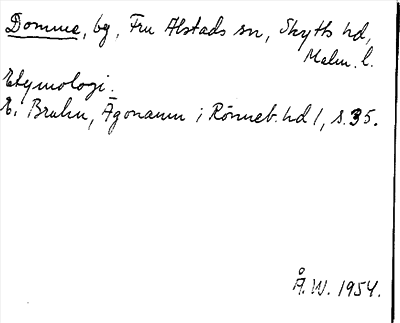 Domme, by, Fru Alstads sn, Skytts hd,
Malm. l.
Etymologi.
E. Bruhn, Ägonamn i Rönneb. hd 1, s. 35.
Å. W. 1954.